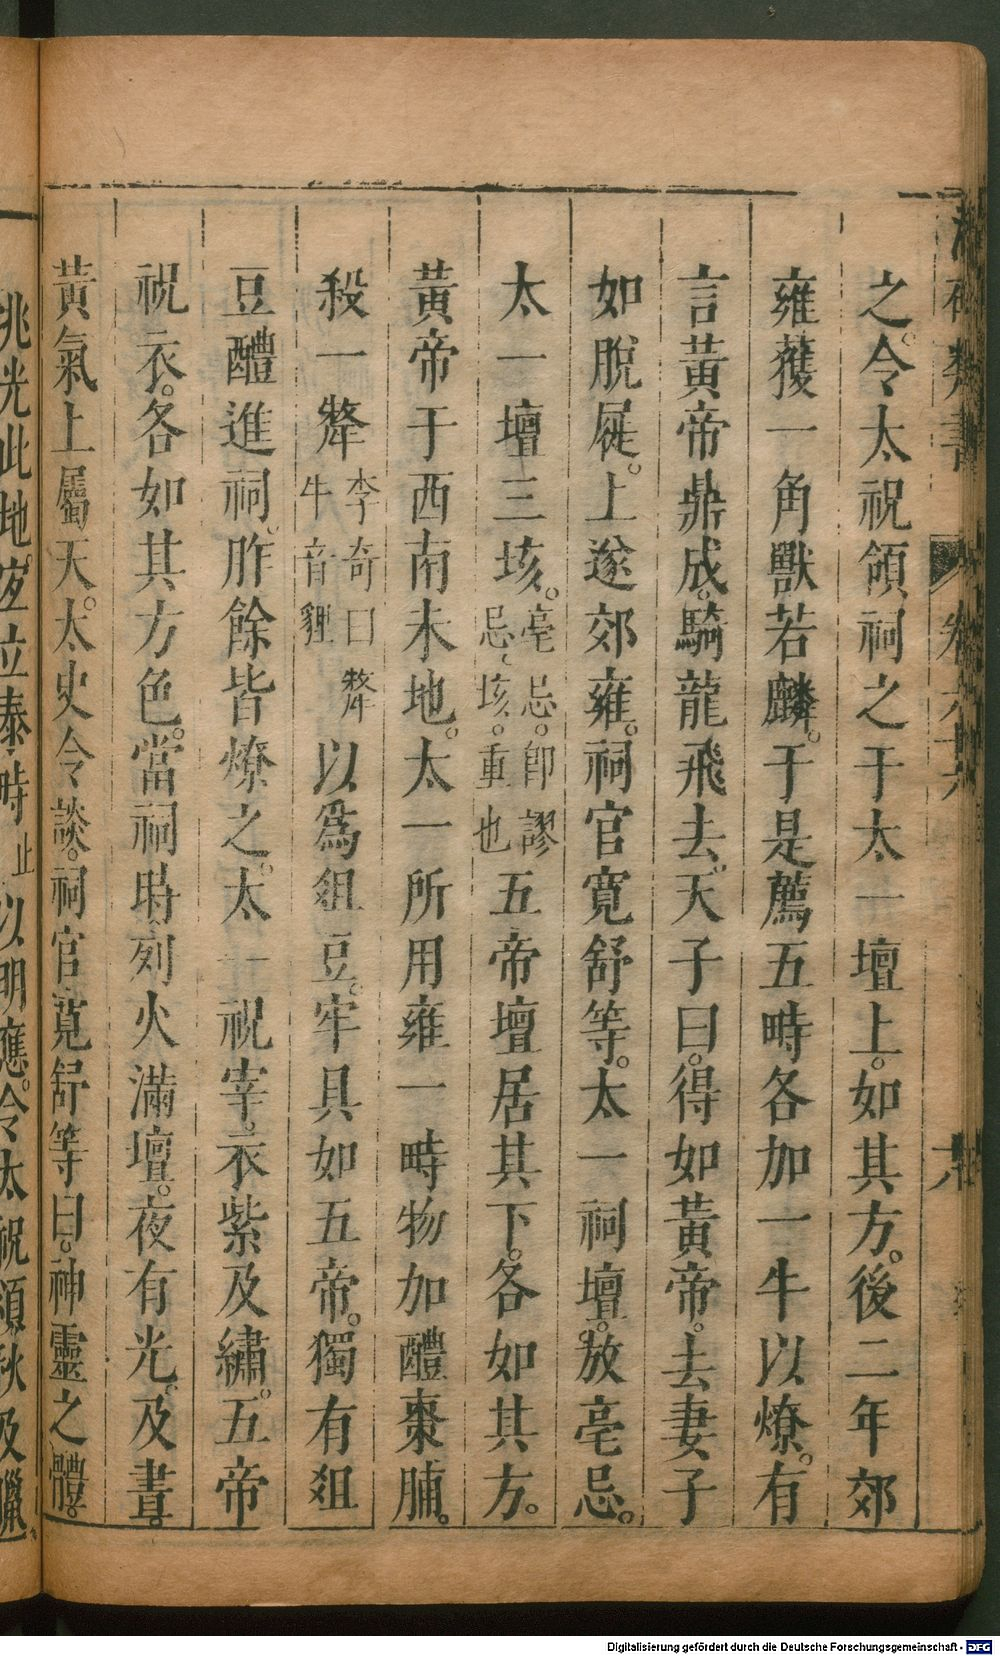 之。令太祝領祠之于太一壇上。如其方。後二年郊
雍獲一角獸若麟。于是薦五畤各加一牛以燎。有
言黃帝鼎成。騎龍飛去。天子曰。得如黃帝。去妻子
如脫屣。上遂郊雍。祠官寬舒等。太一祠壇。放亳忌
太一壇三垓。亳忌。卽謬忌、垓。重也五帝壇居其下。各如其方。
黃帝于西南未地。太一所用雍一畤物加醴棗脯。
殺一犛李奇曰犛牛音貍以爲俎豆。牢具如五帝。獨有俎
豆醴進祠。胙餘皆燎之。太一祝宰。衣紫及繡。五帝
祝衣。各如其方色。當祠時列火滿壇。夜有光。及晝。
黃氣上屬天。太史令談。祠官寬舒等曰。神靈之體。
兆光此地。宜立泰畤止以明應。令太祝領秋及臘
卷六十六
Digitalisierung gefördert durch die Deutsche Forschungsgemeinschaft - DFG